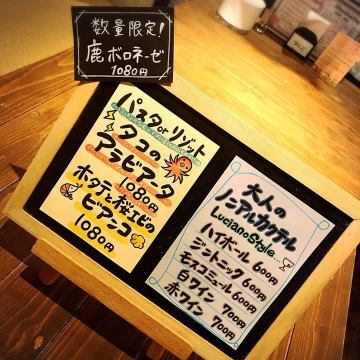 数量限定!
鹿ボロネーゼ
1080円
パスタorリゾット
タコの
アラビアータ
1080円
ホタテと桜エビの
ビアンコ
1080円
大人の
ノンアルカクテル
LucianoStyle...
ハイボール 600円
ジントニック 600円
モスコミュール 600円
白ワイン 700円
赤ワイン 700円